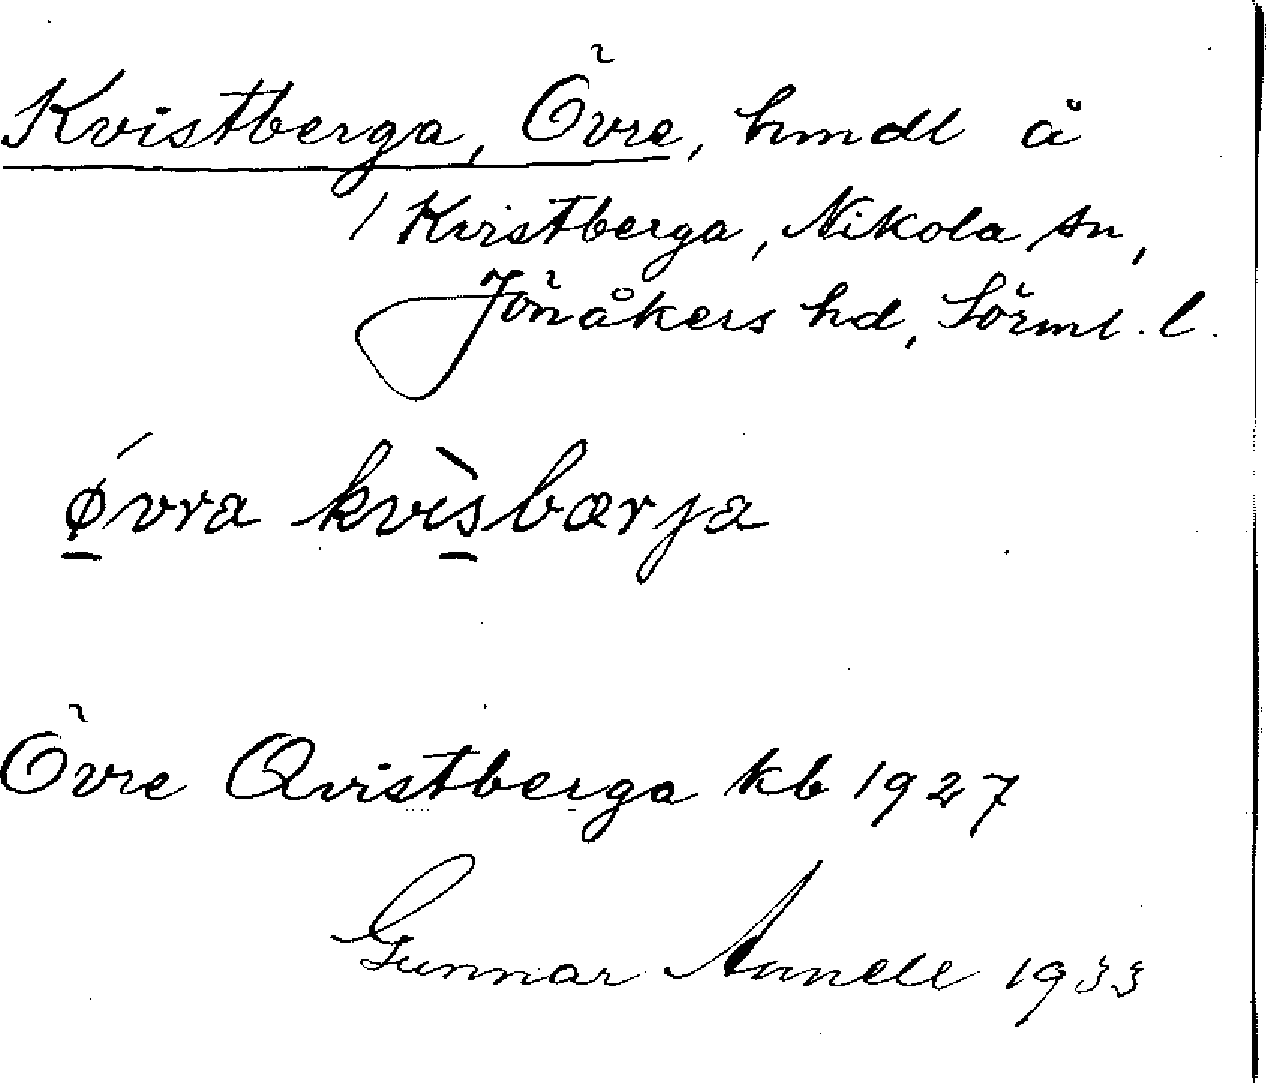 Kvistberga, Övre, hmdl å
/ Kvistberga, Nikolai sn,
Jönåkers hd, Sörml. l.
ǿvra kvìsbærja
Övre Qvistberga kb 1927
Gunnar Annell 1933